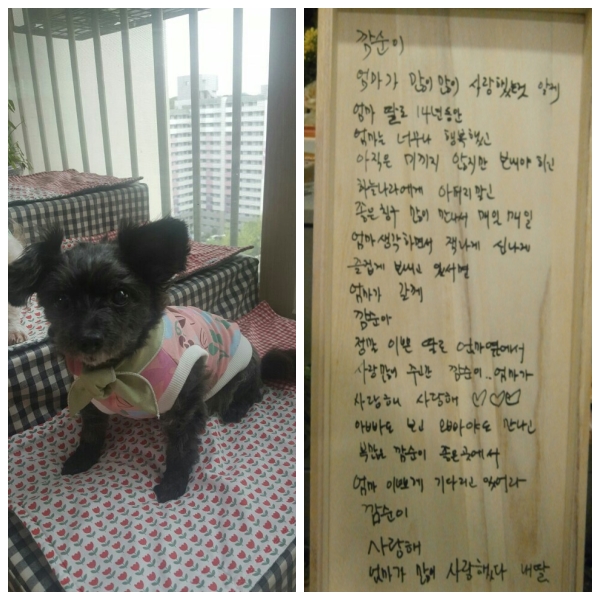 깜순이
엄마가 많이 많이 사랑했던것 알제
엄마 딸로 14년동안
엄마는 너무나 행복했고
아직은 믿끼지 않지만 보내야 되고
하늘나라에게 아퍼지말고
좋은친구 많이 만나서 매일 매일
엄마생각하면서 잼나게 신나게
즐겁게 보내고 있서면
엄마가 갈께
깜순아
정말 이쁜 딸로 엄마옆에서
사랑많이 주고간 깜순이..엄마가
사랑해 사랑해 ♡♡♡
아빠도 보고 오빠야도 만나고
복많은 깜순이 좋은곳에서
엄마 이쁘게 기다리고 있어라
깜순이
사랑해
엄마가 많이 사랑했다 내딸